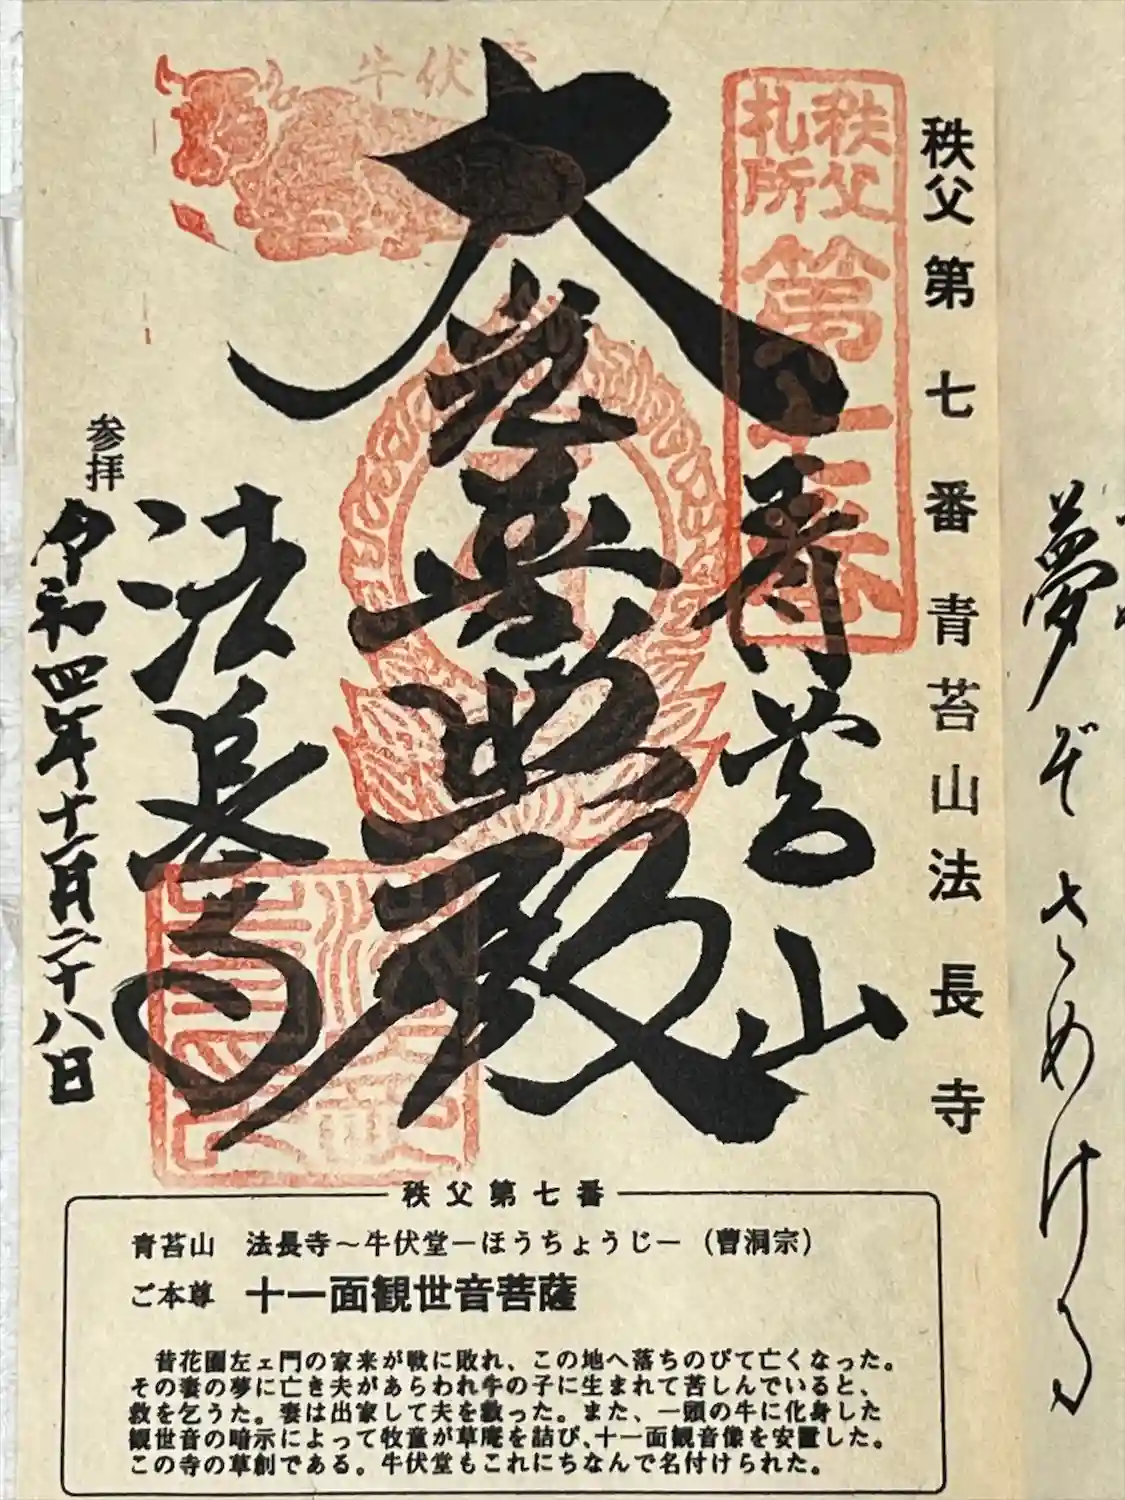 夢ぞさめける
秩父第七番青苔山法長寺
秩父
札所
第七番
牛伏堂
青苔山
大慈悲殿
法長寺
参拝
令和四年十一月二十八日
秩父第七番
青苔山 法長寺～牛伏堂―ほうちょうじ―（曹洞宗）
ご本尊 十一面観世音菩薩
昔花園左ェ門の家来が戦に敗れ、この地へ落ちのびて亡くなった。
その妻の夢に亡き夫があらわれ牛の子に生まれて苦しんでいると、
救を乞うた。妻は出家して夫を救った。また、一頭の牛に化身した
観世音の暗示によって牧童が草庵を詰び、十一面観音像を安置した。
この寺の草創である。牛伏堂もこれにちなんで名付けられた。